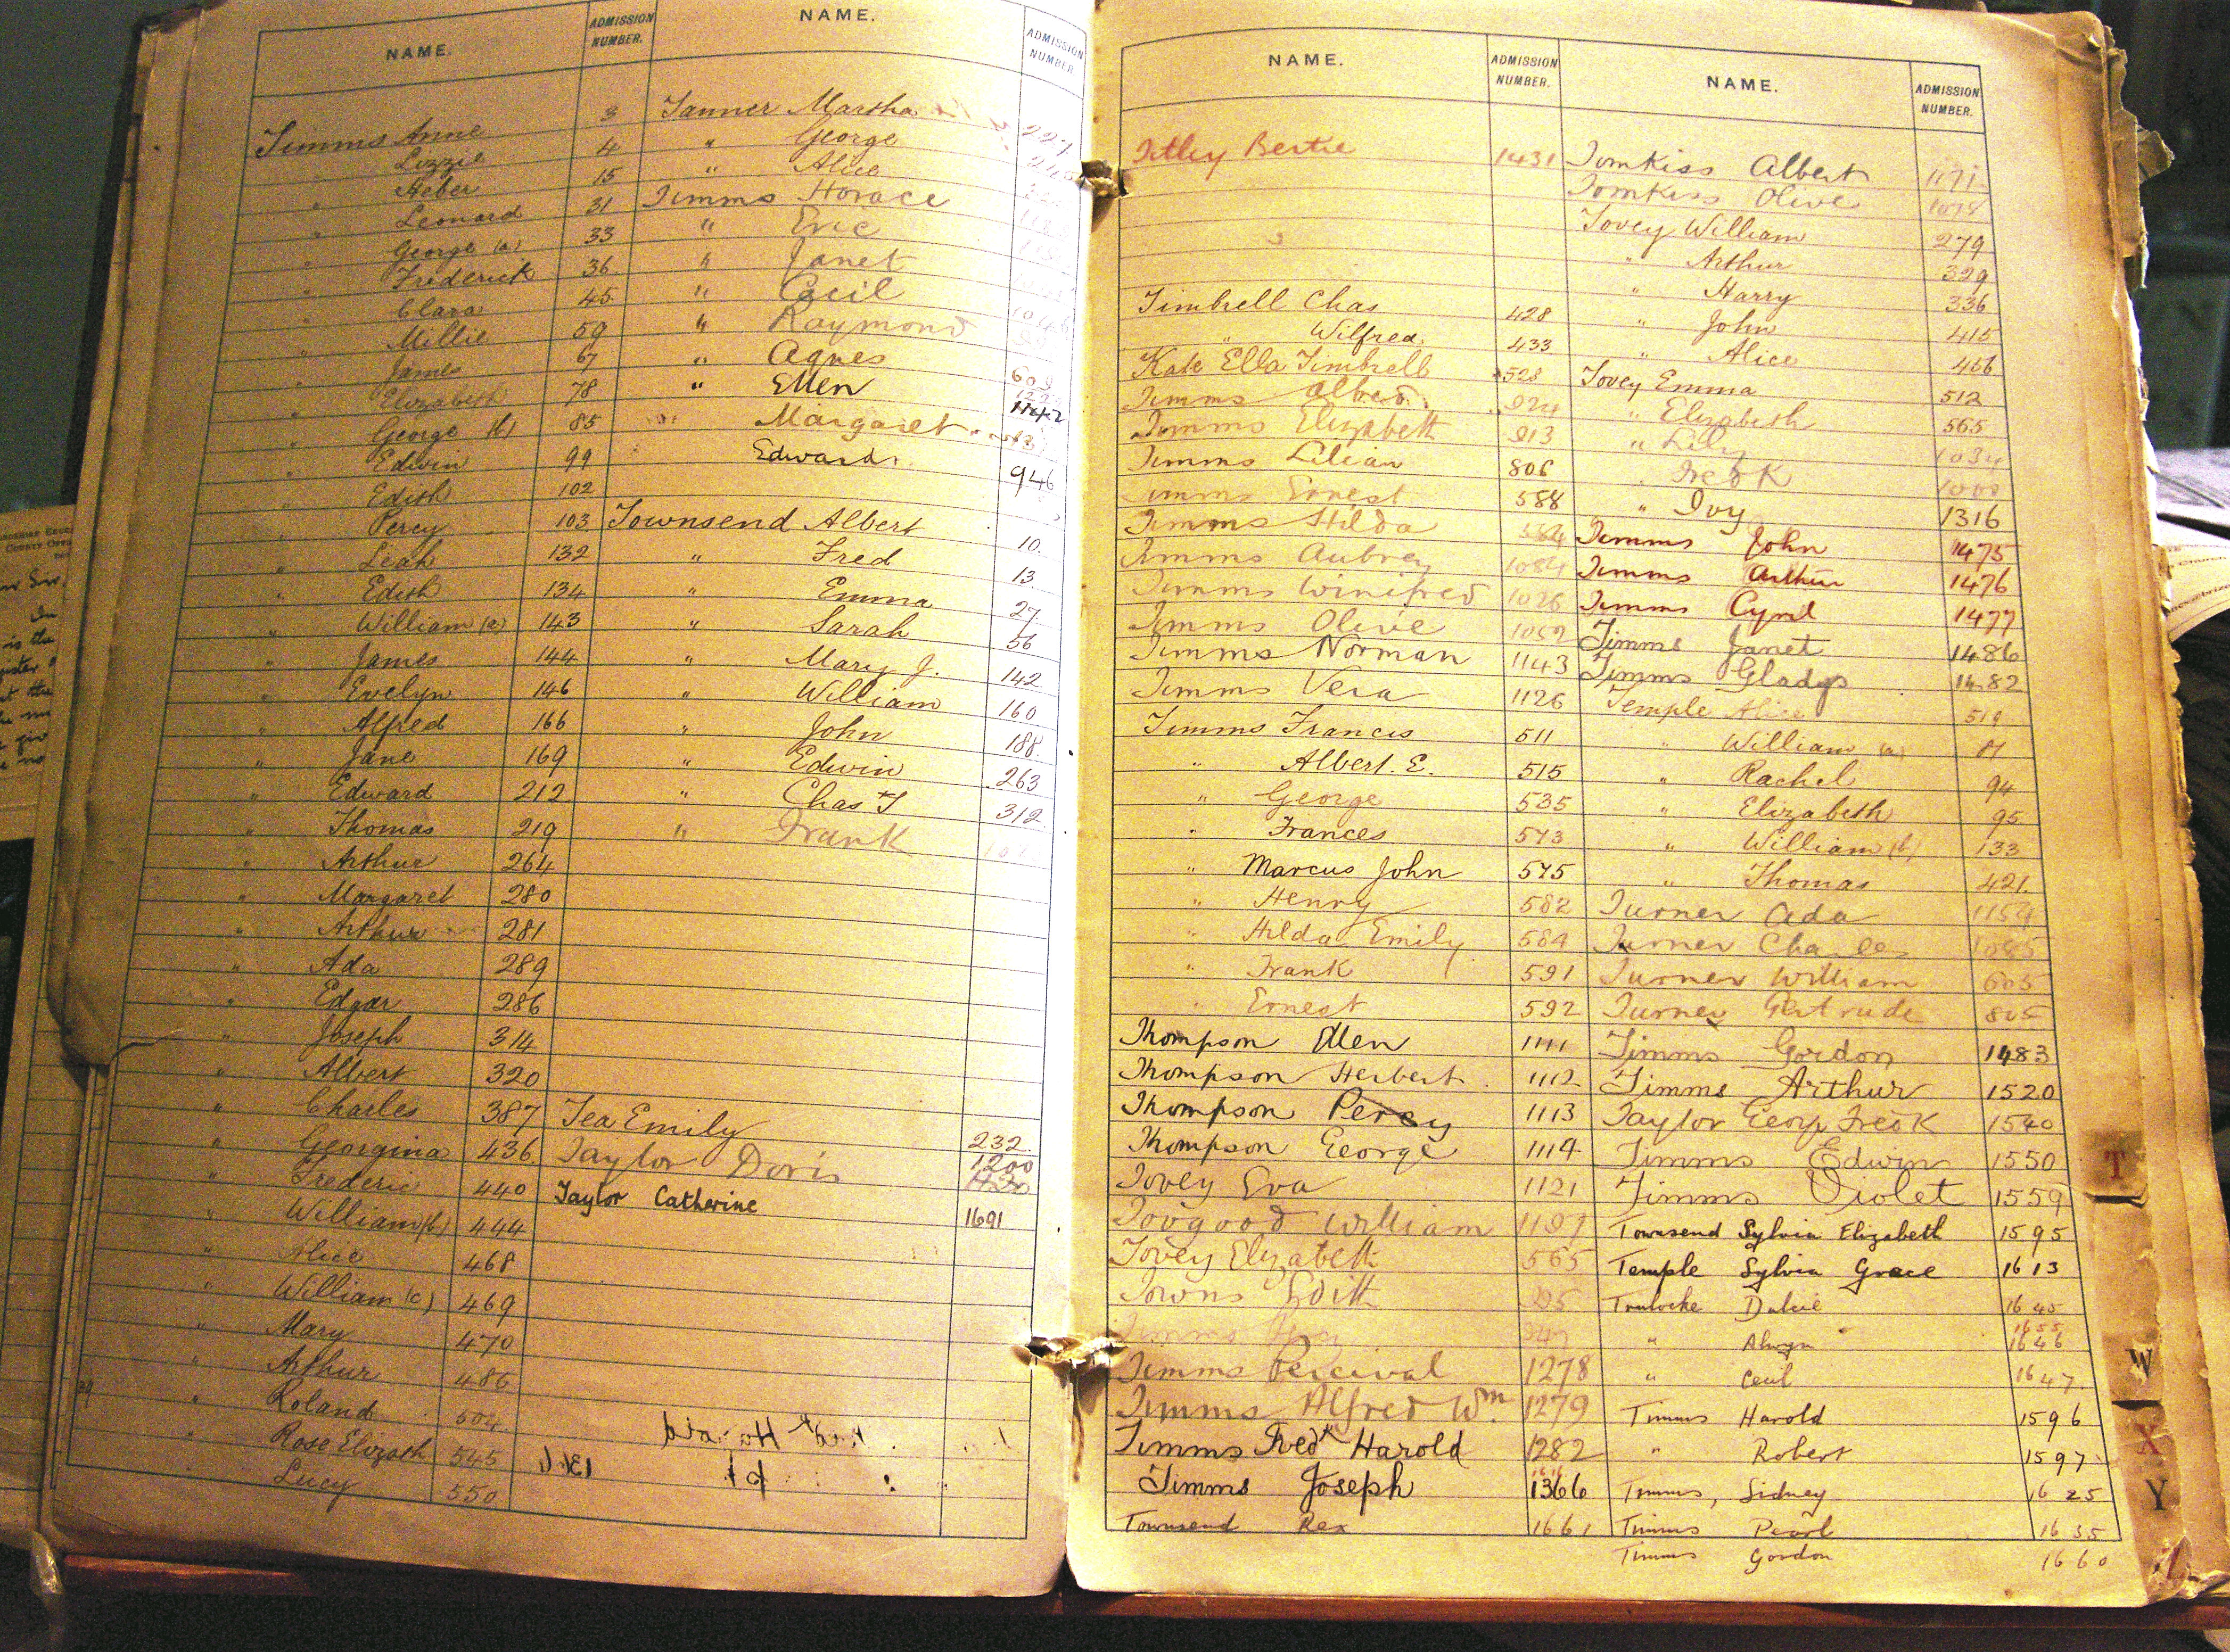 NAME.
ADMISSION NUMBER.
Timms Anne 3
" Lizzie 4
" Heber 15
" Leonard 31
" George (a) 33
" Frederick 36
" Clara 45
" Millie 59
" James 67
" Elizabeth 78
" George (b) 85
" Edwin 99
" Edith 102
" Percy 103
" Leah 132
" Edith 134
" William (a) 143
" James 144
" Evelyn 146
" Alfred 166
" Jane 169
" Edward 212
" Thomas 219
" Arthur 264
" Margaret 280
" Arthur 281
" Ada 289
" Edgar 286
" Joseph 314
" Albert 320
" Charles 387
" Georgina 436
" Frederic 440
" William (b) 444
" Alice 468
" William (c) 469
" Mary 470
" Arthur 486
" Roland 504
" Rose Elizath 545
" Lucy 550
NAME.
ADMISSION NUMBER.
Tanner Martha
" George
" Alice
Timms Horace
" Eric
" Janet
" Cecil
" Raymond
" Agnes
" Ellen 1142
" Margaret
Edward 946
Townsend Albert 10.
" Fred 13
" Emma 27.
" Sarah 56
" Mary J. 142
" William 160
" John 188.
" Edwin 263
" Chas T 312
" Frank
Tea Emily 232
Taylor Doris 1200
Taylor Catherine 1691
NAME.
ADMISSION NUMBER.
Titley Bertie 1431
Timbrell Chas 428
" Wilfred. 433
Kate Ella Timbrell 528
Timms Alfred
Timms Elizabeth 913
Timms Lilian 806
Timms Ernest 588
Timms Hilda 584
Timms Aubrey 1084
Timms Winifred 1026
Timms Olive 1052
Timms Norman 1143
Timms Vera 1126
Timms Francis 511
" Albert. E. 515
" George 535
" Frances 573
" Marcus John 575
" Henry 582
" Hilda Emily 584
" Frank 591
" Ernest 592
Thompson Ellen 1111
Thompson Herbert 1112
Thompson Percy 1113
Thompson George 1114
Tovey Eva 1121
Toogood William 1197
Tovey Elizabeth 565
Towns Edith
Timms
Timms Percival 1278
Timms Alfred Wm. 1279
Timms Fredk Harold 1282
Timms Joseph 1366
Townsend Rex 1661
NAME.
ADMISSION NUMBER.
Tomkiss Albert 1171
Tomkiss Olive 1078
Tovey William 279
" Arthur 329
" Harry 336
" John 415
" Alice 466
Tovey Emma 512
" Elizabeth 565
" Lily 1034
" Fredk 1000
" Ivy 1316
Timms John 1475
Timms Arthur 1476
Timms Cyril 1477
Timms Janet 1486
Timms Gladys 1482
Temple Alice 519
" William (a) 81
" Rachel 94
" Elizabeth 95
" William (b) 133
" Thomas 421.
Turner Ada 1154
Turner Charles 1085
Turner William 605
Turner Gertrude 805
Timms Gordon 1483
Timms Arthur 1520
Taylor Georg Fredk 1540
Timms Edwin 1550
Timms Violet 1559
Townsend Sylvia Elizabeth 1595
Temple Sylvia Grace 1613
Trulocke Dulcie 1645
1655
" Alwyn 1646
" Cecil 1647
Timms Harold 1596
" Robert 1597
Timms, Sidney 1625
Timms Pearl 1635
Timms Gordon 1660
T
W
X
Y